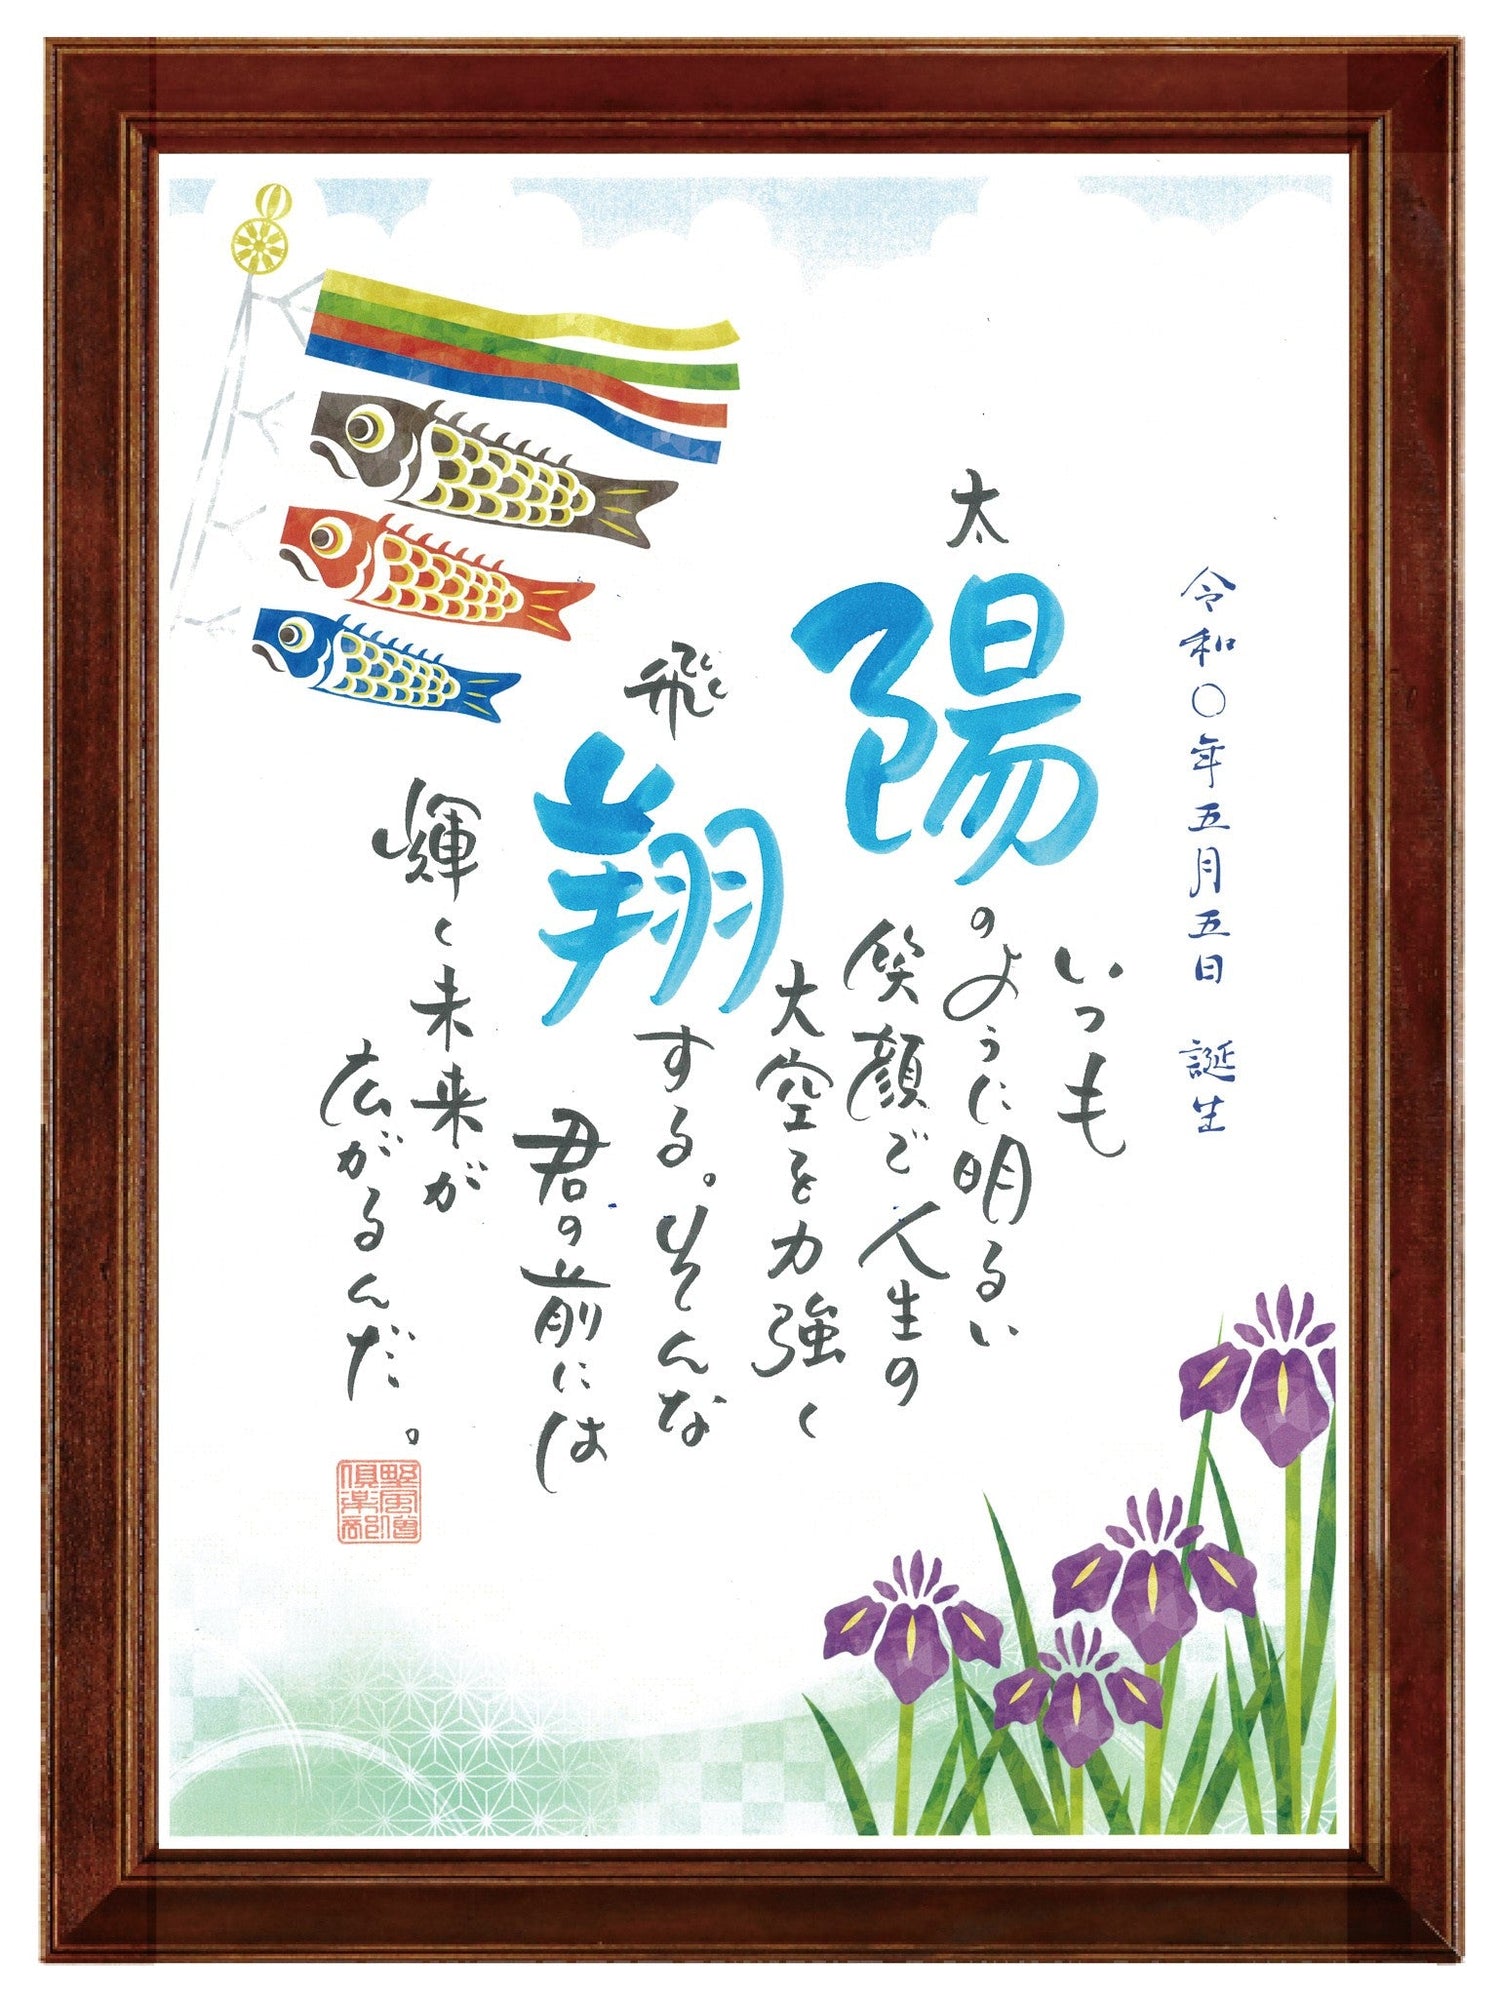 令和〇年五月五日 誕生
いつも
太陽のように明るい
笑顔で人生の
大空を力強く
飛翔する。そんな
君の前には
輝く未来が
広がるんだ。